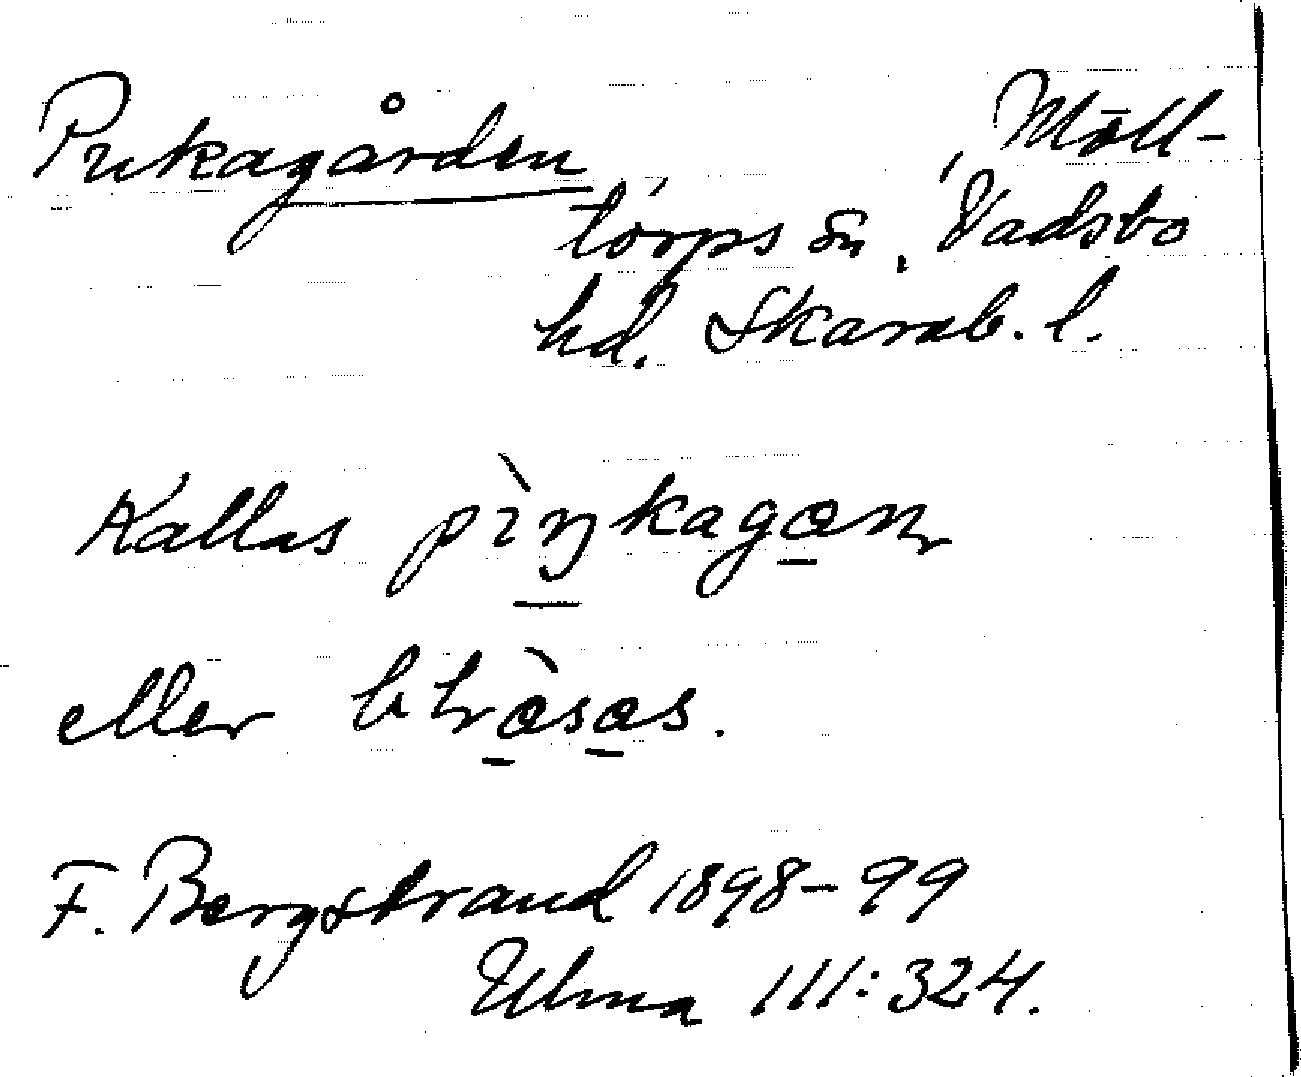 Pukagården, Möll-
torps sn, Vadsbo
hd. Skarab. l.
Kallas pìŋkagaɳ
eller
F. Bergstrand 1898-99
Ulma 111:324.